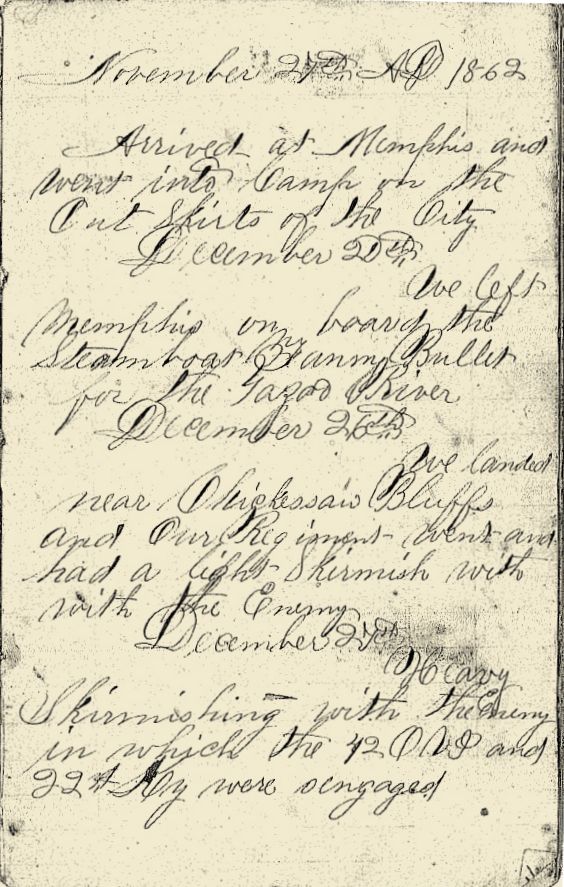 November 27th AD 1862
Arrived at Memphis and
went into Camp on the
Out Skirts of the City
December 20th
We left
Memphis on board the
Steamboat Fanny Bullet
for the Yazoo River
December 26th
We landed
near Chickessaw Bluffs
and Our Regiment went and
had a light Skirmish with
with the Enemy
December 27th
Heavy
Skirmishing with the Enemy
in which the 42 OVI and
22d Ky were engaged